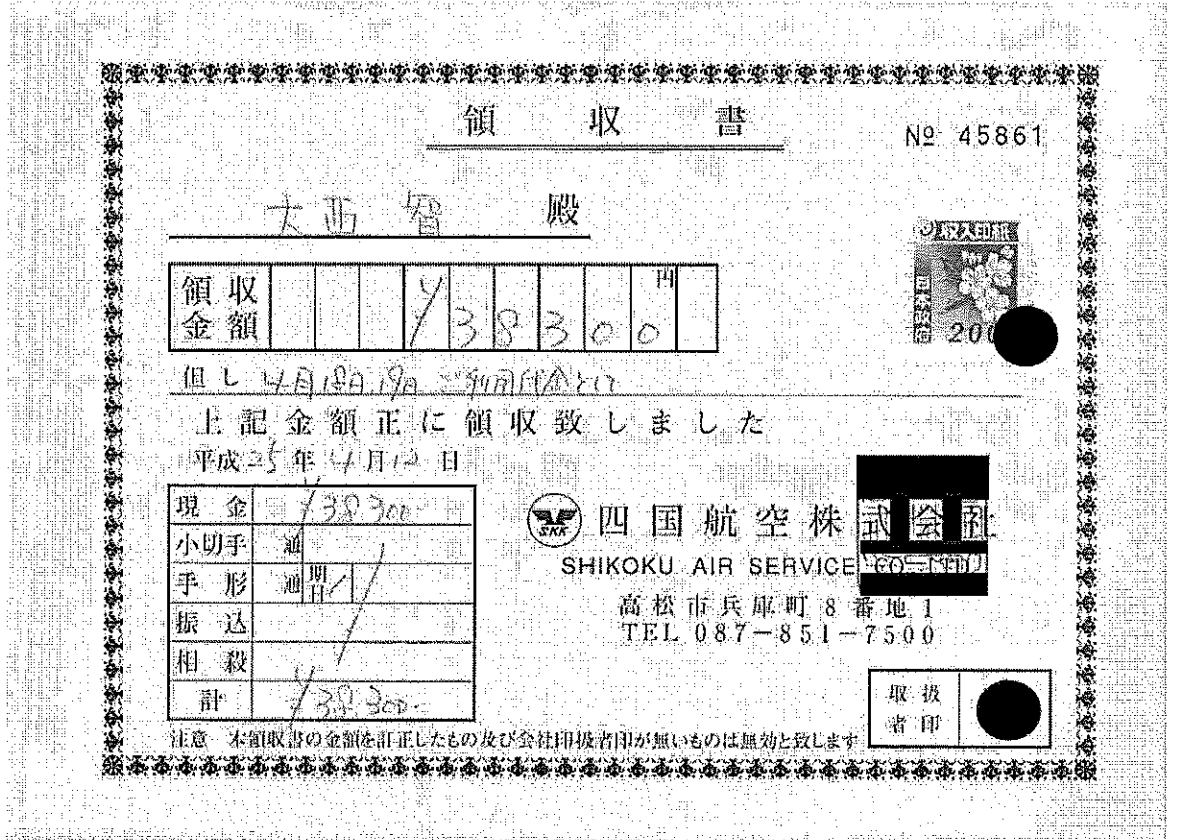 領収書
№ 45861
大西 智 殿
収入印紙
日本政府
200
領収金額 ¥38300円
但し 4月18日.19日 ご利用代金として
上記金額正に領収致しました
平成25年4月12日
現金 ¥38,300-
小切手 通
手形 通 期日
振込
相殺
計 ¥38,300-
SKK
四国航空株式会社
SHIKOKU AIR SERVICE CO.LTD
高松市兵庫町8番地1
TEL 087-851-7500
取扱者印
注意 本領収書の金額を訂正したもの及び会社印扱者印が無いものは無効と致します